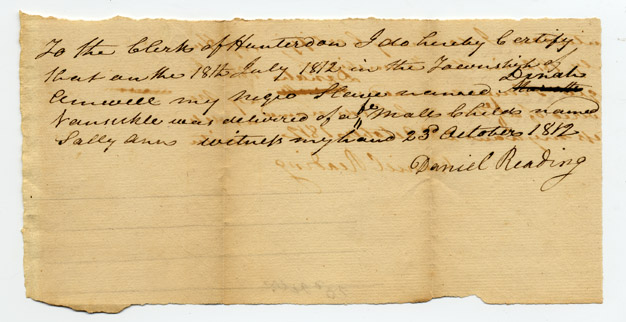 To the Clerk of Hunterdon I do hereby Certify
that on the 18th July 1812 in the Township of
Dinah
Amwell my negro Slave named
Vansickle was delivered of a fe Male Child named
Sally Ann witness my hand 23d October 1812
Daniel Reading